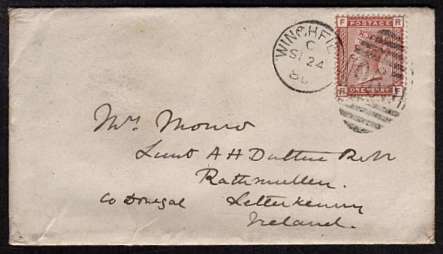 WINCHFIE
C
SP 24
80
F POSTAGE R
R ONE PENNY F
Mrs Monro
Lieut A H Dutton R.N
Rathmullen.
Co Donegal Letterkenny
Ireland.